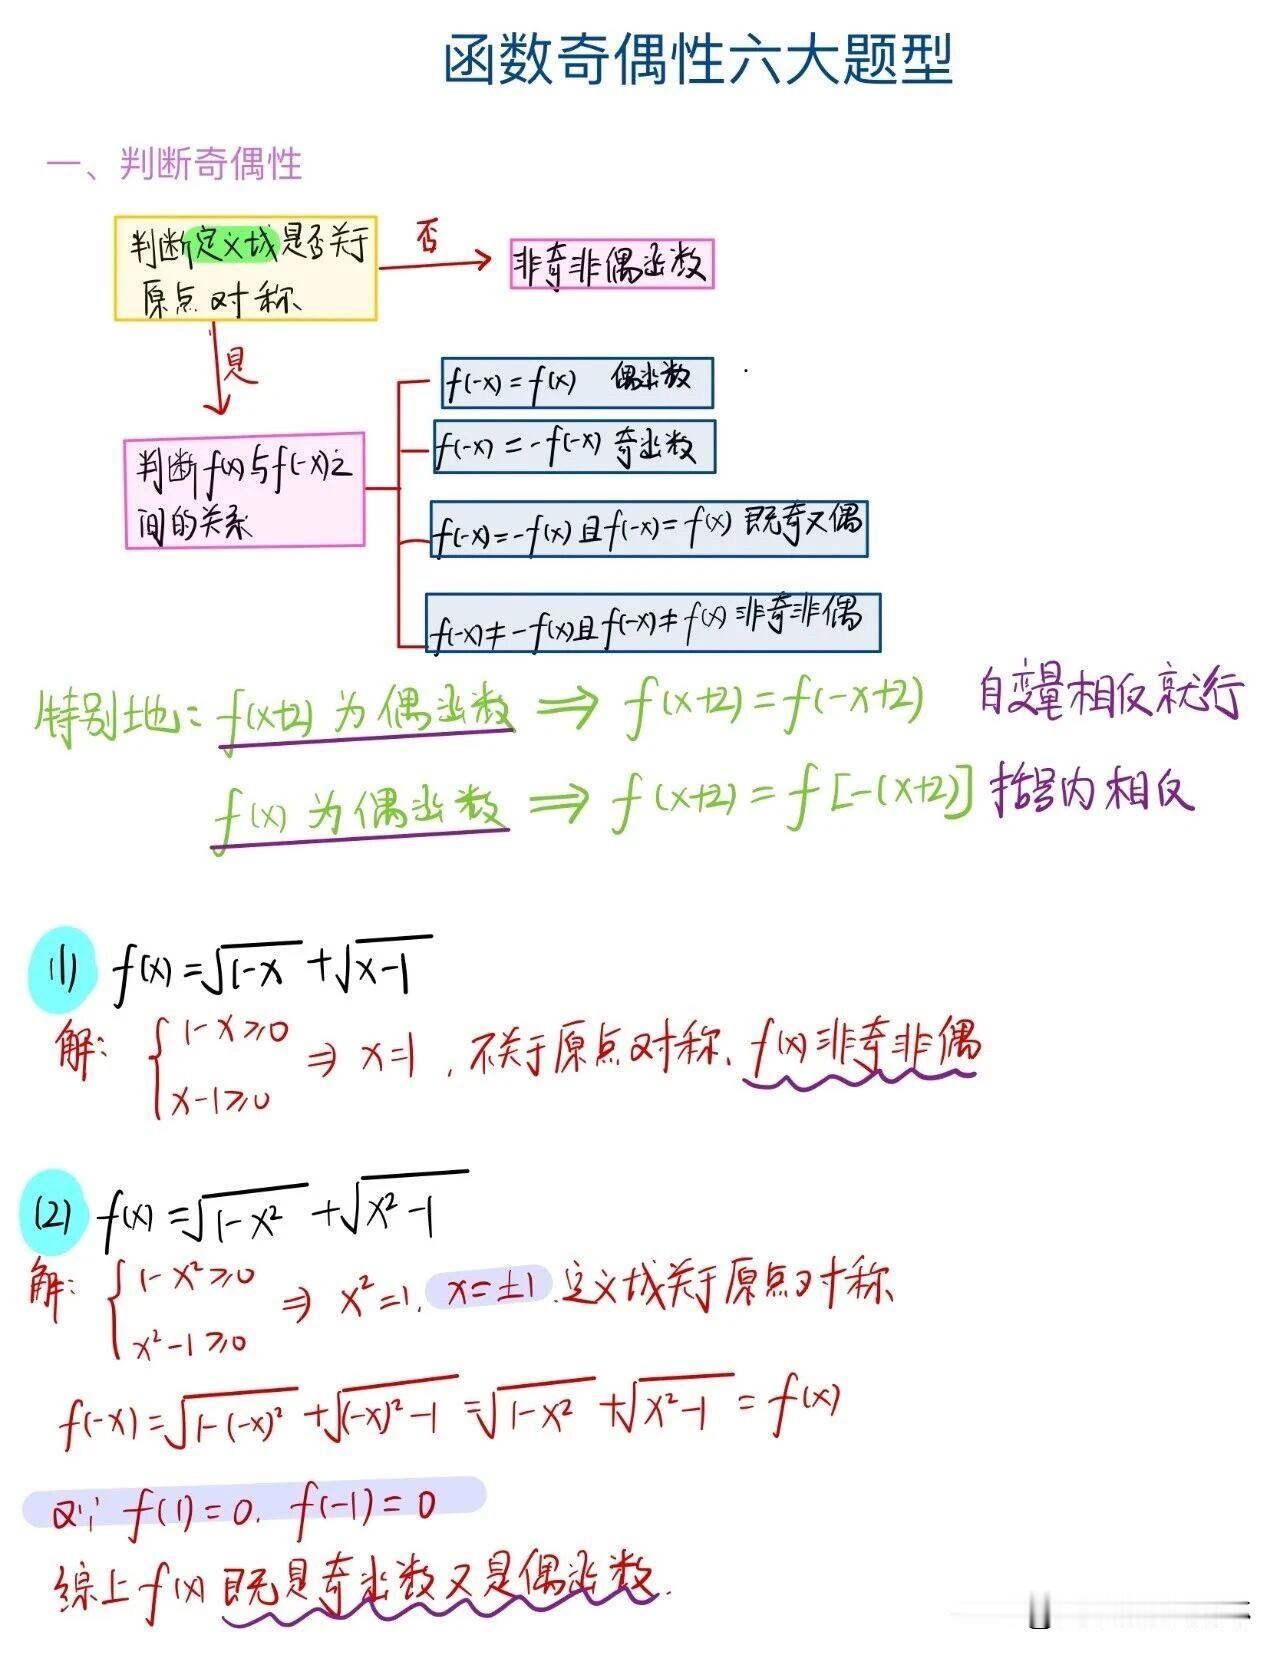 函数奇偶性六大题型
一、判断奇偶性
判断定义域是否关于
原点对称
否
非奇非偶函数
是
判断f(x)与f(-x)之
间的关系
f(-x)=f(x) 偶函数
f(-x)=-f(-x) 奇函数
f(-x)=-f(x)且f(-x)=f(x) 既奇又偶
f(-x)≠-f(x)且f(-x)≠f(x) 非奇非偶
特别地: f(x+2) 为偶函数 ⇒ f(x+2)=f(-x+2) 自变量相反就行
f(x) 为偶函数 ⇒ f(x+2)=f[-(x+2)] 括号内相反
(1) f(x)=√(1-x)+√(x-1)
解: { 1-x≥0
x-1≥0 ⇒ x=1, 不关于原点对称, f(x)非奇非偶
(2) f(x)=√(1-x²)+√(x²-1)
解: { 1-x²≥0
x²-1≥0 ⇒ x²=1, x=±1, 定义域关于原点对称
f(-x)=√(1-(-x)²)+√((-x)²-1)=√(1-x²)+√(x²-1)=f(x)
又∵ f(1)=0, f(-1)=0
综上f(x)既是奇函数又是偶函数.